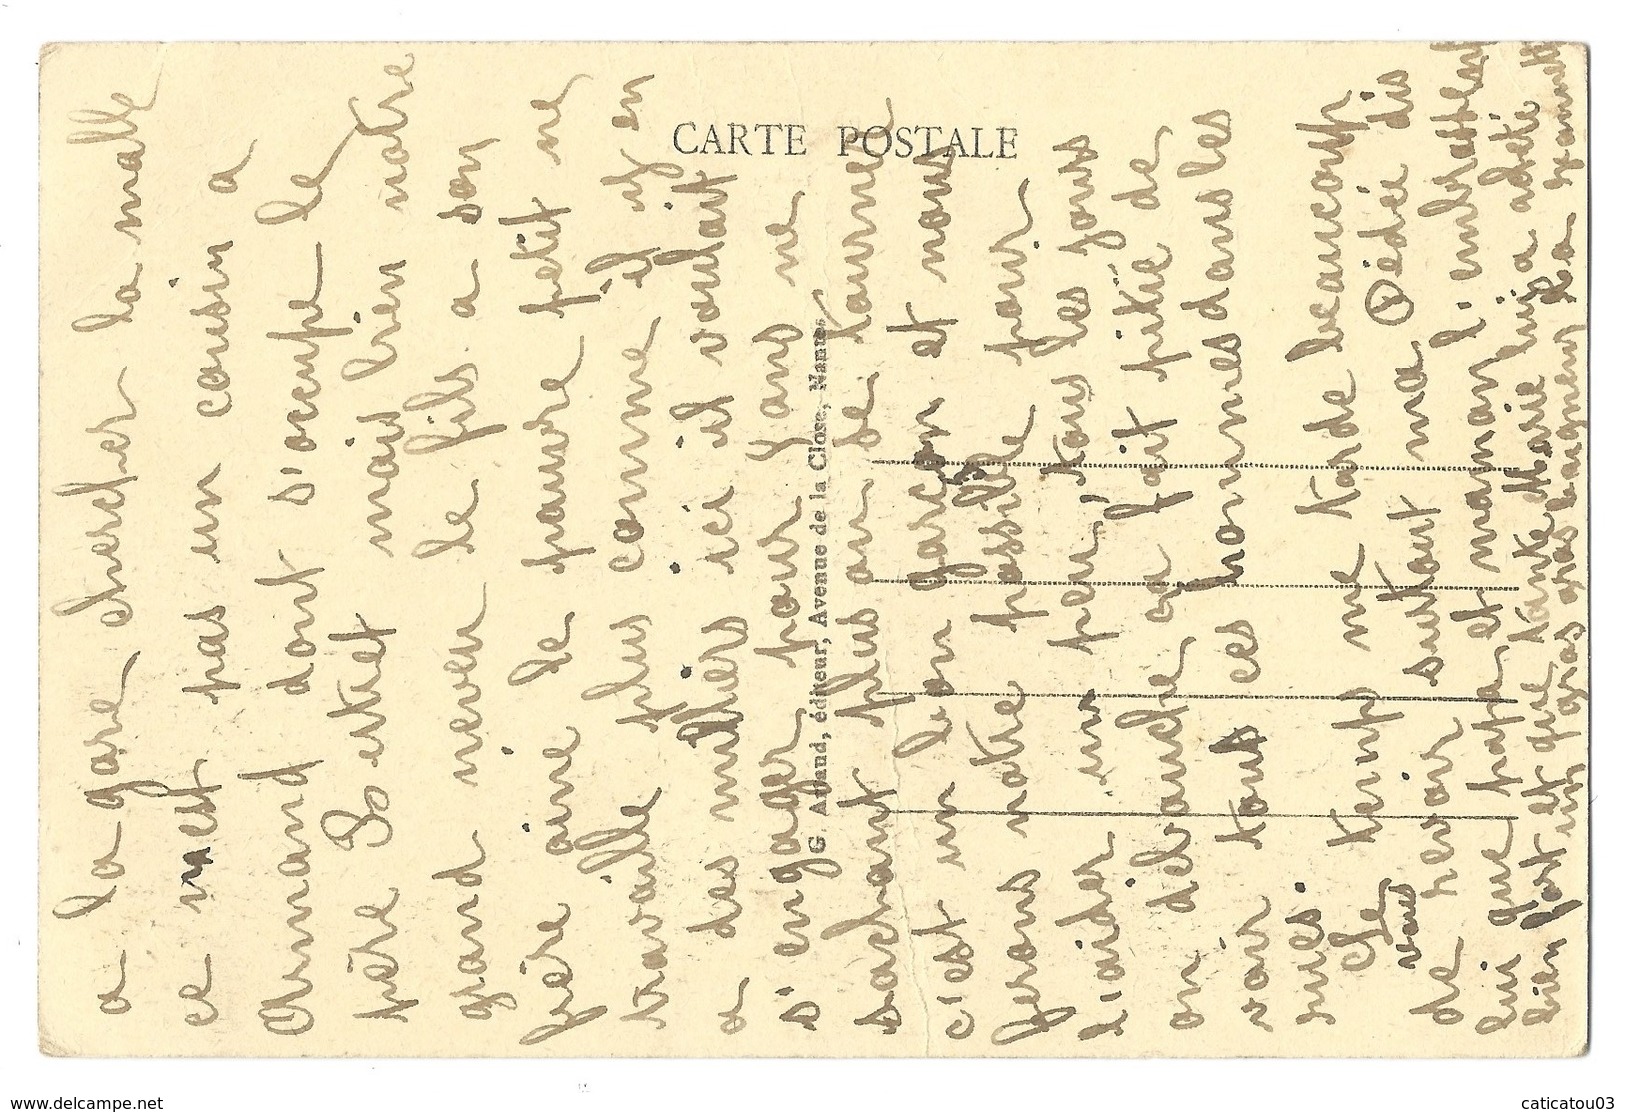 CARTE POSTALE
G. Artaud, éditeur, Avenue de la Close, Nantes
a la gare chercher la malle
ce n'est pas un cousin a
Armand dont s'occupe le
père Bertiet mais bien notre
grand neveu le fils a son
frère aine le pauvre petit ne
travaille plus comme il y en
a des milliers ici il voulait
s'engager pour 4 ans ne
sachant plus ou se tourner
c'est un bon garçon et nous
ferons notre possible pour
l'aider un peu, tous les jours
on débauche ca fait pitié de
voir tout ces hommes dans les
rues.
Le temps me tarde beaucoup
de vous revoir surtout ma Dédée dis
lui que papa et maman l'embrassent
bien fort et que tante Marie lui a acheté
un gros baigneur